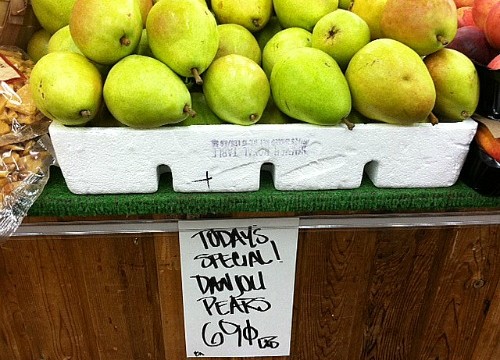 TODAYS
SPECIAL!
DANJOU
PEARS
69¢ LBS